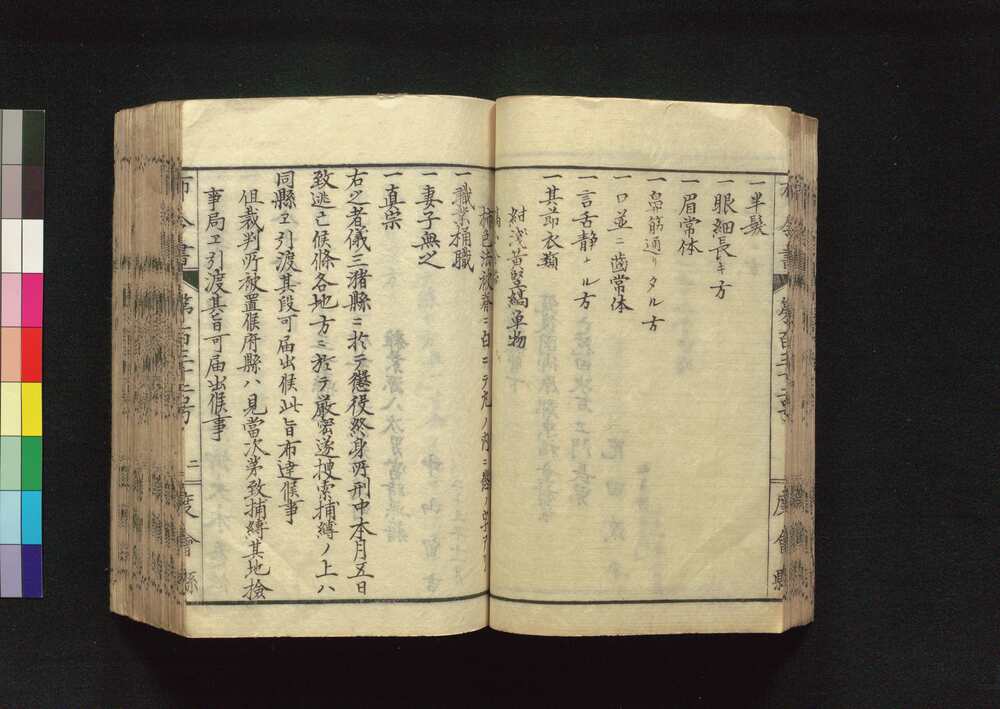 一半髪
一眼細長キ方
一眉常体
一鼻筋通リタル方
一口並ニ歯常体
一言舌静ナル方
一其節衣類
紺浅黄竪縞単物
柿色法被脊ニ白ニテ丸ノ内ニ
一職業桶職
一妻子無之
一真宗
右之者儀三潴縣ニ於テ懲役終身所刑中本月五日
致逃亡候條各地方ニ於テ厳密遂捜索捕縛ノ上ハ
同縣ヱ引渡其段可届出候此旨布達候事
但裁判所被置候府縣ハ見當次第致捕縛其地撿
事局ヱ引渡其旨可届出候事
布令書 第百三十二号 二 度會縣